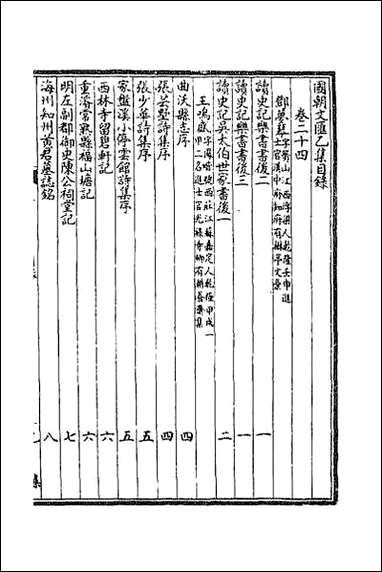 國朝文匯乙集目錄
卷二十四
鄧夢琴 字 山江西浮梁人乾隆壬申進士官漢中府知府有楙亭文稾
讀史記樂書書後二 一
讀史記樂書書後三 一
讀史記吳太伯世家書後一 二
王鳴盛 字鳳喈號西莊江蘇嘉定人乾隆甲戌一甲二名進士官光祿寺卿有耕養齋集
曲沃縣志序 四
張芸墅詩集序 四
張少華詩集序 五
家盤溪小停雲館詩集序 五
西林寺留碧軒記 六
重濬常熟縣福山塘記 六
明左副都御史陳公祠堂記 七
海州知州黃君墓誌銘 八